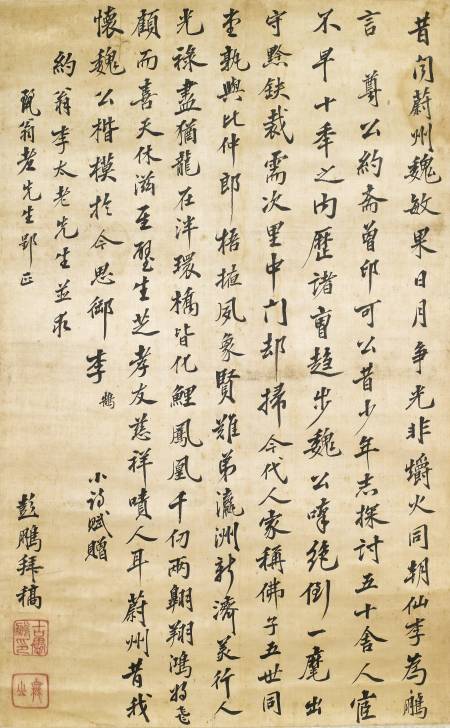 昔聞蔚州魏敏果日月爭光非爝火同朝仙李為鵬
言 尊公約齋曾印可公昔少年志探討五十舍人官
不早十年之內歷諸曹趨步魏公嗟絕倒一麾出
守黟鈇裁需次里中門却掃今代人家稱佛子五世同
堂孰與比仲郎梧掖夙象賢難弟瀛洲新濟美行人
光祿盡猶龍在泮環橋皆化鯉鳳凰千仞兩翱翔鴻
顧而喜天休滋至璧生芝孝友慈祥嘖人耳蔚州昔我
懷魏公楷模於今思御李
小詩賦贈
約翁李太老先生並求
翁老先生郢正
彭鵬拜稿